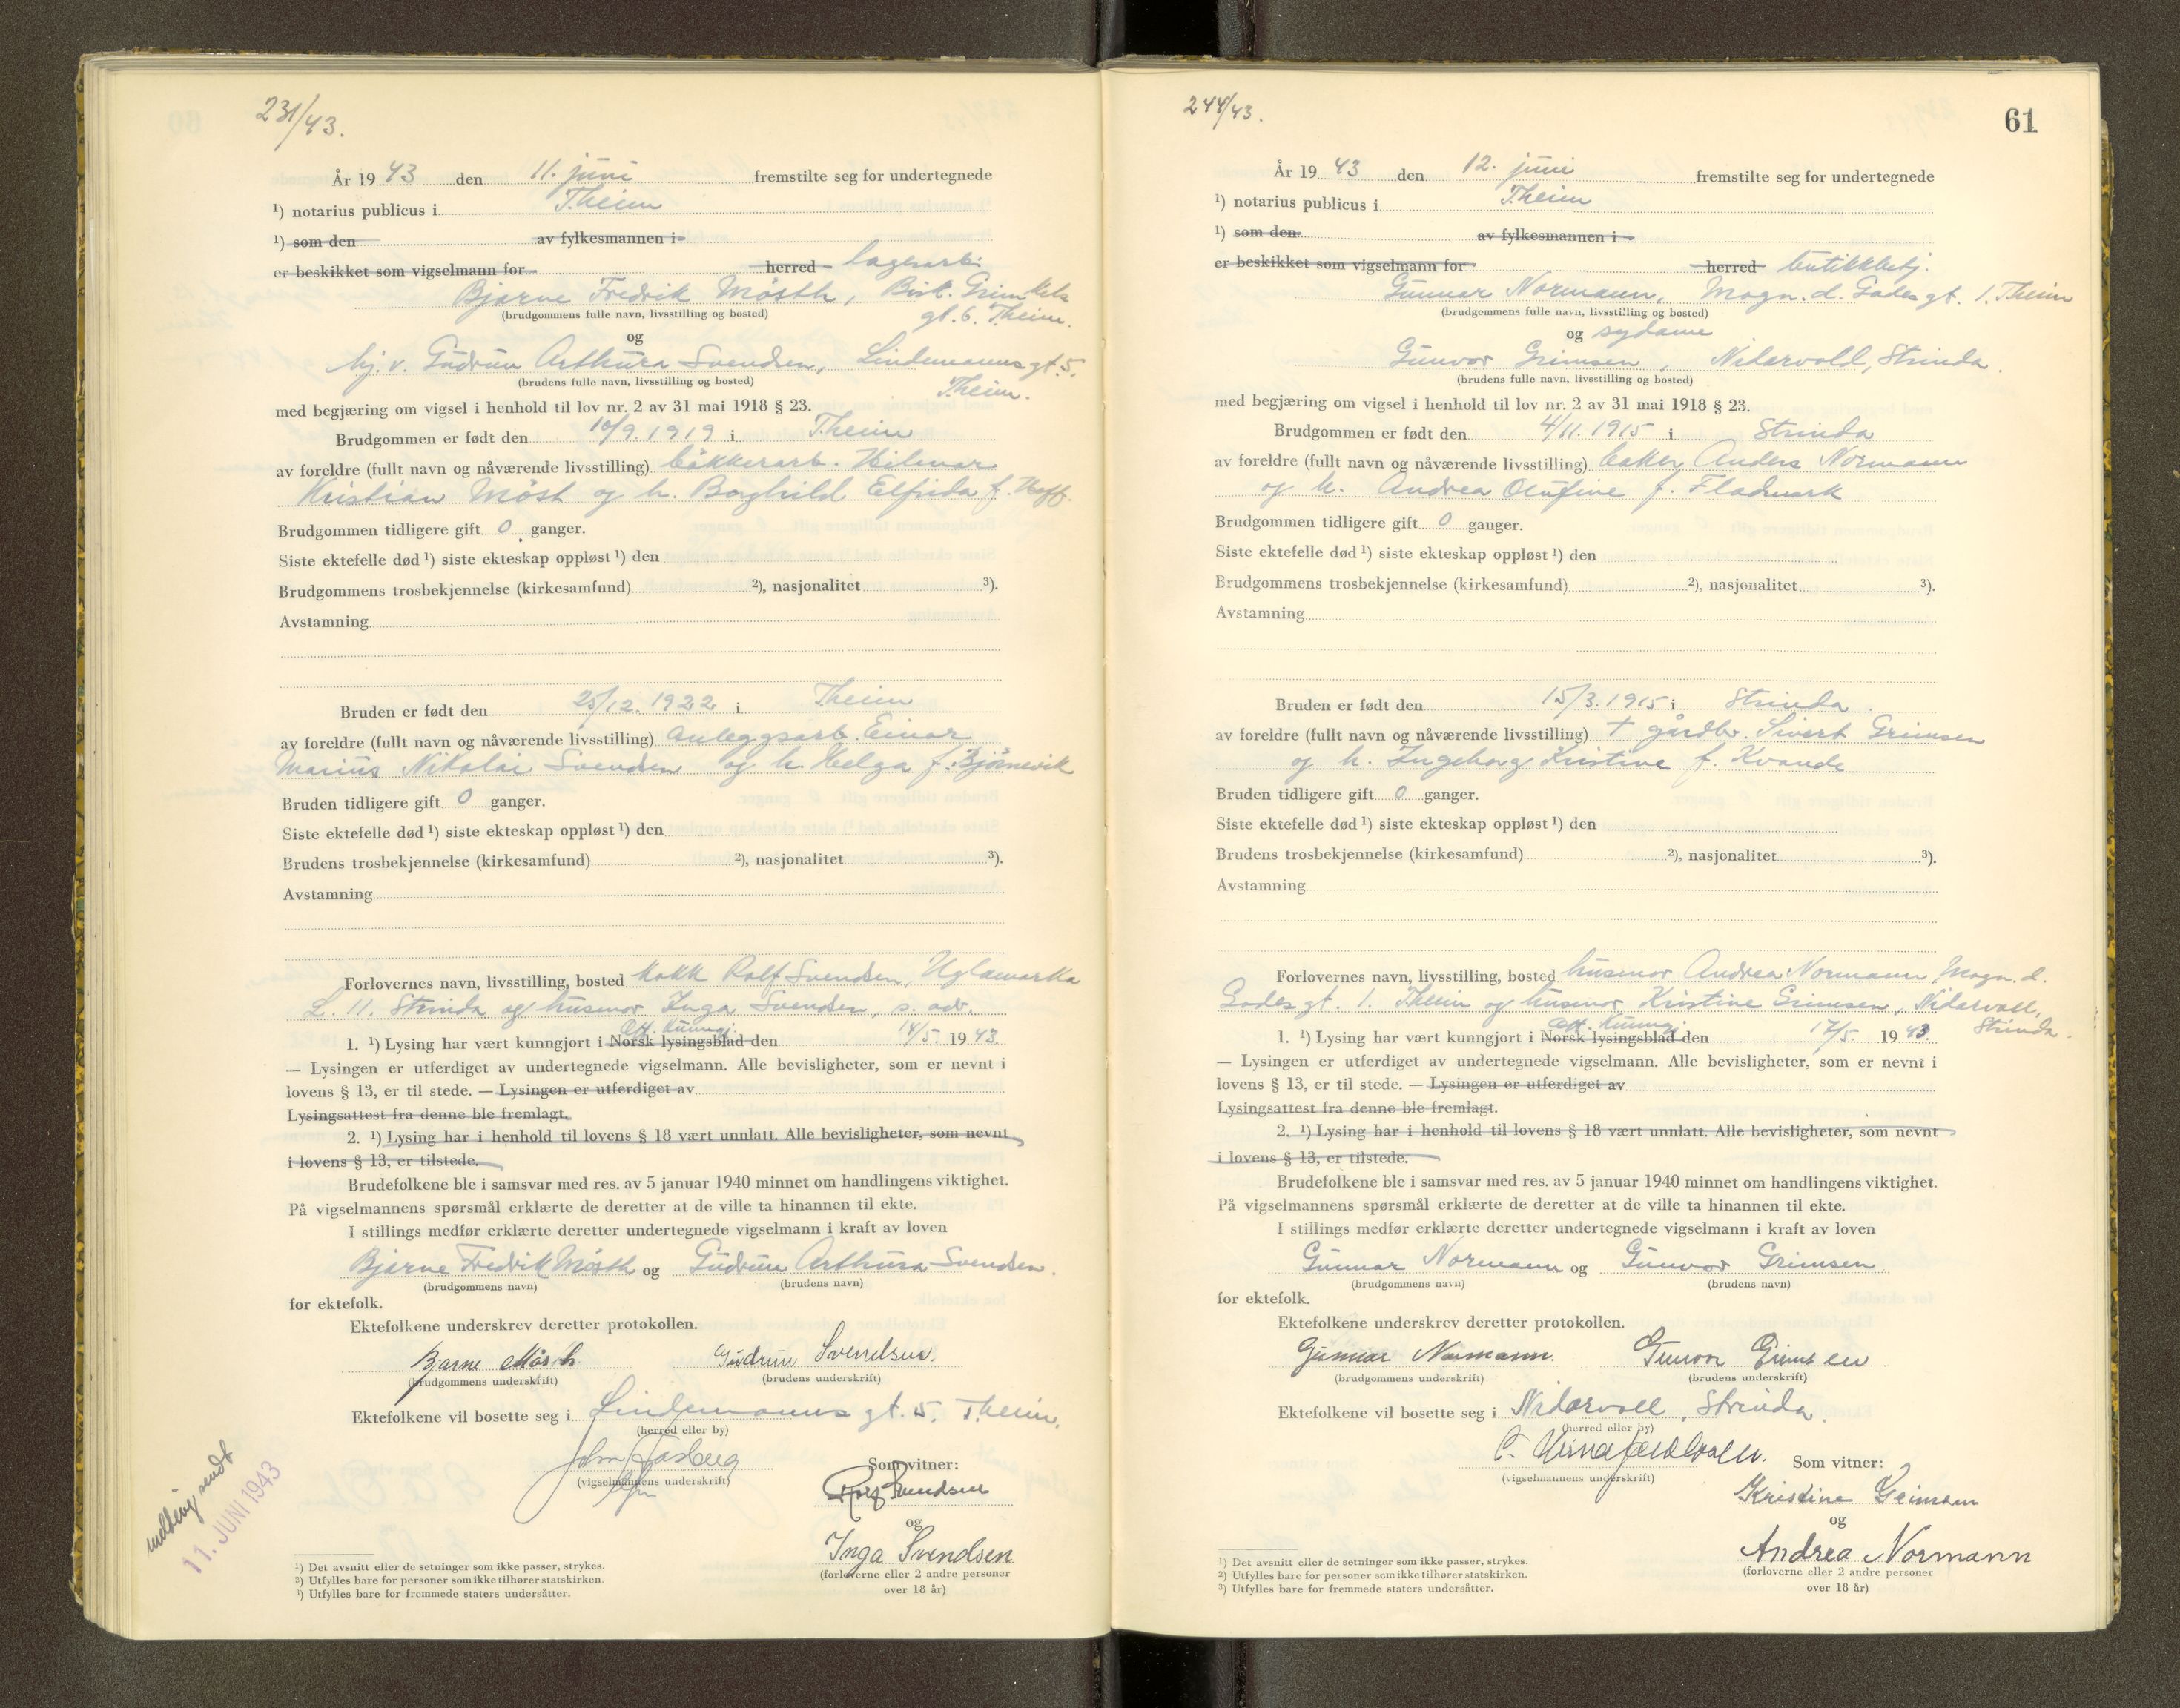 231/43.
År 19 43 den 11. juni fremstilte seg for undertegnede
¹) notarius publicus i Theim
¹) som den av fylkesmannen i
er beskikket som vigselmann for herred lagerarb.
Bjarne Fredrik Mösth, Bisk. Grimkels
(brudgommens fulle navn, livsstilling og bosted) gt. 6. Theim.
og
hj. v. Gudrun Arthura Svendsen, Lindemannsgt. 5.
(brudens fulle navn, livsstilling og bosted) Theim.
med begjæring om vigsel i henhold til lov nr. 2 av 31 mai 1918 § 23.
Brudgommen er født den 10/9. 1919 i Theim
av foreldre (fullt navn og nåværende livsstilling) bökkerarb. Hilmar
Kristian Möst og h. Borghild Elfrida f. Hoff.
Brudgommen tidligere gift 0 ganger.
Siste ektefelle død ¹) siste ekteskap oppløst ¹) den
Brudgommens trosbekjennelse (kirkesamfund) ²), nasjonalitet ³).
Avstamning
Bruden er født den 25/12. 1922 i Theim
av foreldre (fullt navn og nåværende livsstilling) anleggsarb. Einar
Marius Nikolai Svendsen og h. Helga f. Björnevik
Bruden tidligere gift 0 ganger.
Siste ektefelle død ¹) siste ekteskap oppløst ¹) den
Brudens trosbekjennelse (kirkesamfund) ²), nasjonalitet ³).
Avstamning
Forlovernes navn, livsstilling, bosted kokk Rolf Svendsen, Uglamarka
L. 11. Strinda og husmor Inga Svendsen, s. adr.
Off. Kunngj.
1. ¹) Lysing har vært kunngjort i Norsk lysingsblad den 14/5. 19 43.
— Lysingen er utferdiget av undertegnede vigselmann. Alle bevisligheter, som er nevnt i
lovens § 13, er til stede. — Lysingen er utferdiget av
Lysingsattest fra denne ble fremlagt.
2. ¹) Lysing har i henhold til lovens § 18 vært unnlatt. Alle bevisligheter, som nevnt
i lovens § 13, er tilstede.
Brudefolkene ble i samsvar med res. av 5 januar 1940 minnet om handlingens viktighet.
På vigselmannens spørsmål erklærte de deretter at de ville ta hinannen til ekte.
I stillings medfør erklærte deretter undertegnede vigselmann i kraft av loven
Bjarne Fredrik Mösth og Gudrun Arthura Svendsen.
(brudgommens navn) (brudens navn)
for ektefolk.
Ektefolkene underskrev deretter protokollen.
Bjarne Mösth. Gudrun Svendsen.
(brudgommens underskrift) (brudens underskrift)
Ektefolkene vil bosette seg i Lindemanns gt. 5. Theim.
(herred eller by)
(vigselmannens underskrift) Som vitner:
Rolf Svendsen
og
Inga Svendsen
(forloverne eller 2 andre personer
over 18 år)
11. JUNI 1943
¹) Det avsnitt eller de setninger som ikke passer, strykes.
²) Utfylles bare for personer som ikke tilhører statskirken.
³) Utfylles bare for fremmede staters undersåtter.
244/43.
61
År 19 43 den 12. juni fremstilte seg for undertegnede
¹) notarius publicus i Theim
¹) som den av fylkesmannen i
er beskikket som vigselmann for herred butikkbetj.
Gunnar Normann, Magn. d. Godes gt. 1. Theim
(brudgommens fulle navn, livsstilling og bosted)
og sydame
Gunvor Grimsen, Nidarvold, Strinda.
(brudens fulle navn, livsstilling og bosted)
med begjæring om vigsel i henhold til lov nr. 2 av 31 mai 1918 § 23.
Brudgommen er født den 4/11. 1915 i Strinda
av foreldre (fullt navn og nåværende livsstilling) baker Anders Normann
og h. Andrea Olufine f. Fladmark
Brudgommen tidligere gift 0 ganger.
Siste ektefelle død ¹) siste ekteskap oppløst ¹) den
Brudgommens trosbekjennelse (kirkesamfund) ²), nasjonalitet ³).
Avstamning
Bruden er født den 15/3. 1915 i Strinda.
av foreldre (fullt navn og nåværende livsstilling) † gårdbr. Sivert Grimsen
og h. Ingeborg Kristine f. Kvande
Bruden tidligere gift 0 ganger.
Siste ektefelle død ¹) siste ekteskap oppløst ¹) den
Brudens trosbekjennelse (kirkesamfund) ²), nasjonalitet ³).
Avstamning
Forlovernes navn, livsstilling, bosted husmor Andrea Normann Magn. d.
Godes gt. 1. Theim og husmor Kristine Grimsen, Nidarvoll,
Off. Kunngj. Strinda.
1. ¹) Lysing har vært kunngjort i Norsk lysingsblad den 17/5. 19 43.
— Lysingen er utferdiget av undertegnede vigselmann. Alle bevisligheter, som er nevnt i
lovens § 13, er til stede. — Lysingen er utferdiget av
Lysingsattest fra denne ble fremlagt.
2. ¹) Lysing har i henhold til lovens § 18 vært unnlatt. Alle bevisligheter, som nevnt
i lovens § 13, er tilstede.
Brudefolkene ble i samsvar med res. av 5 januar 1940 minnet om handlingens viktighet.
På vigselmannens spørsmål erklærte de deretter at de ville ta hinannen til ekte.
I stillings medfør erklærte deretter undertegnede vigselmann i kraft av loven
Gunnar Normann og Gunvor Grimsen
(brudgommens navn) (brudens navn)
for ektefolk.
Ektefolkene underskrev deretter protokollen.
Gunnar Normann. Gunvor Grimsen
(brudgommens underskrift) (brudens underskrift)
Ektefolkene vil bosette seg i Nidarvoll, Strinda.
(herred eller by)
(vigselmannens underskrift) Som vitner:
Kristine Grimsen
og
Andrea Normann
(forloverne eller 2 andre personer
over 18 år)
¹) Det avsnitt eller de setninger som ikke passer, strykes.
²) Utfylles bare for personer som ikke tilhører statskirken.
³) Utfylles bare for fremmede staters undersåtter.